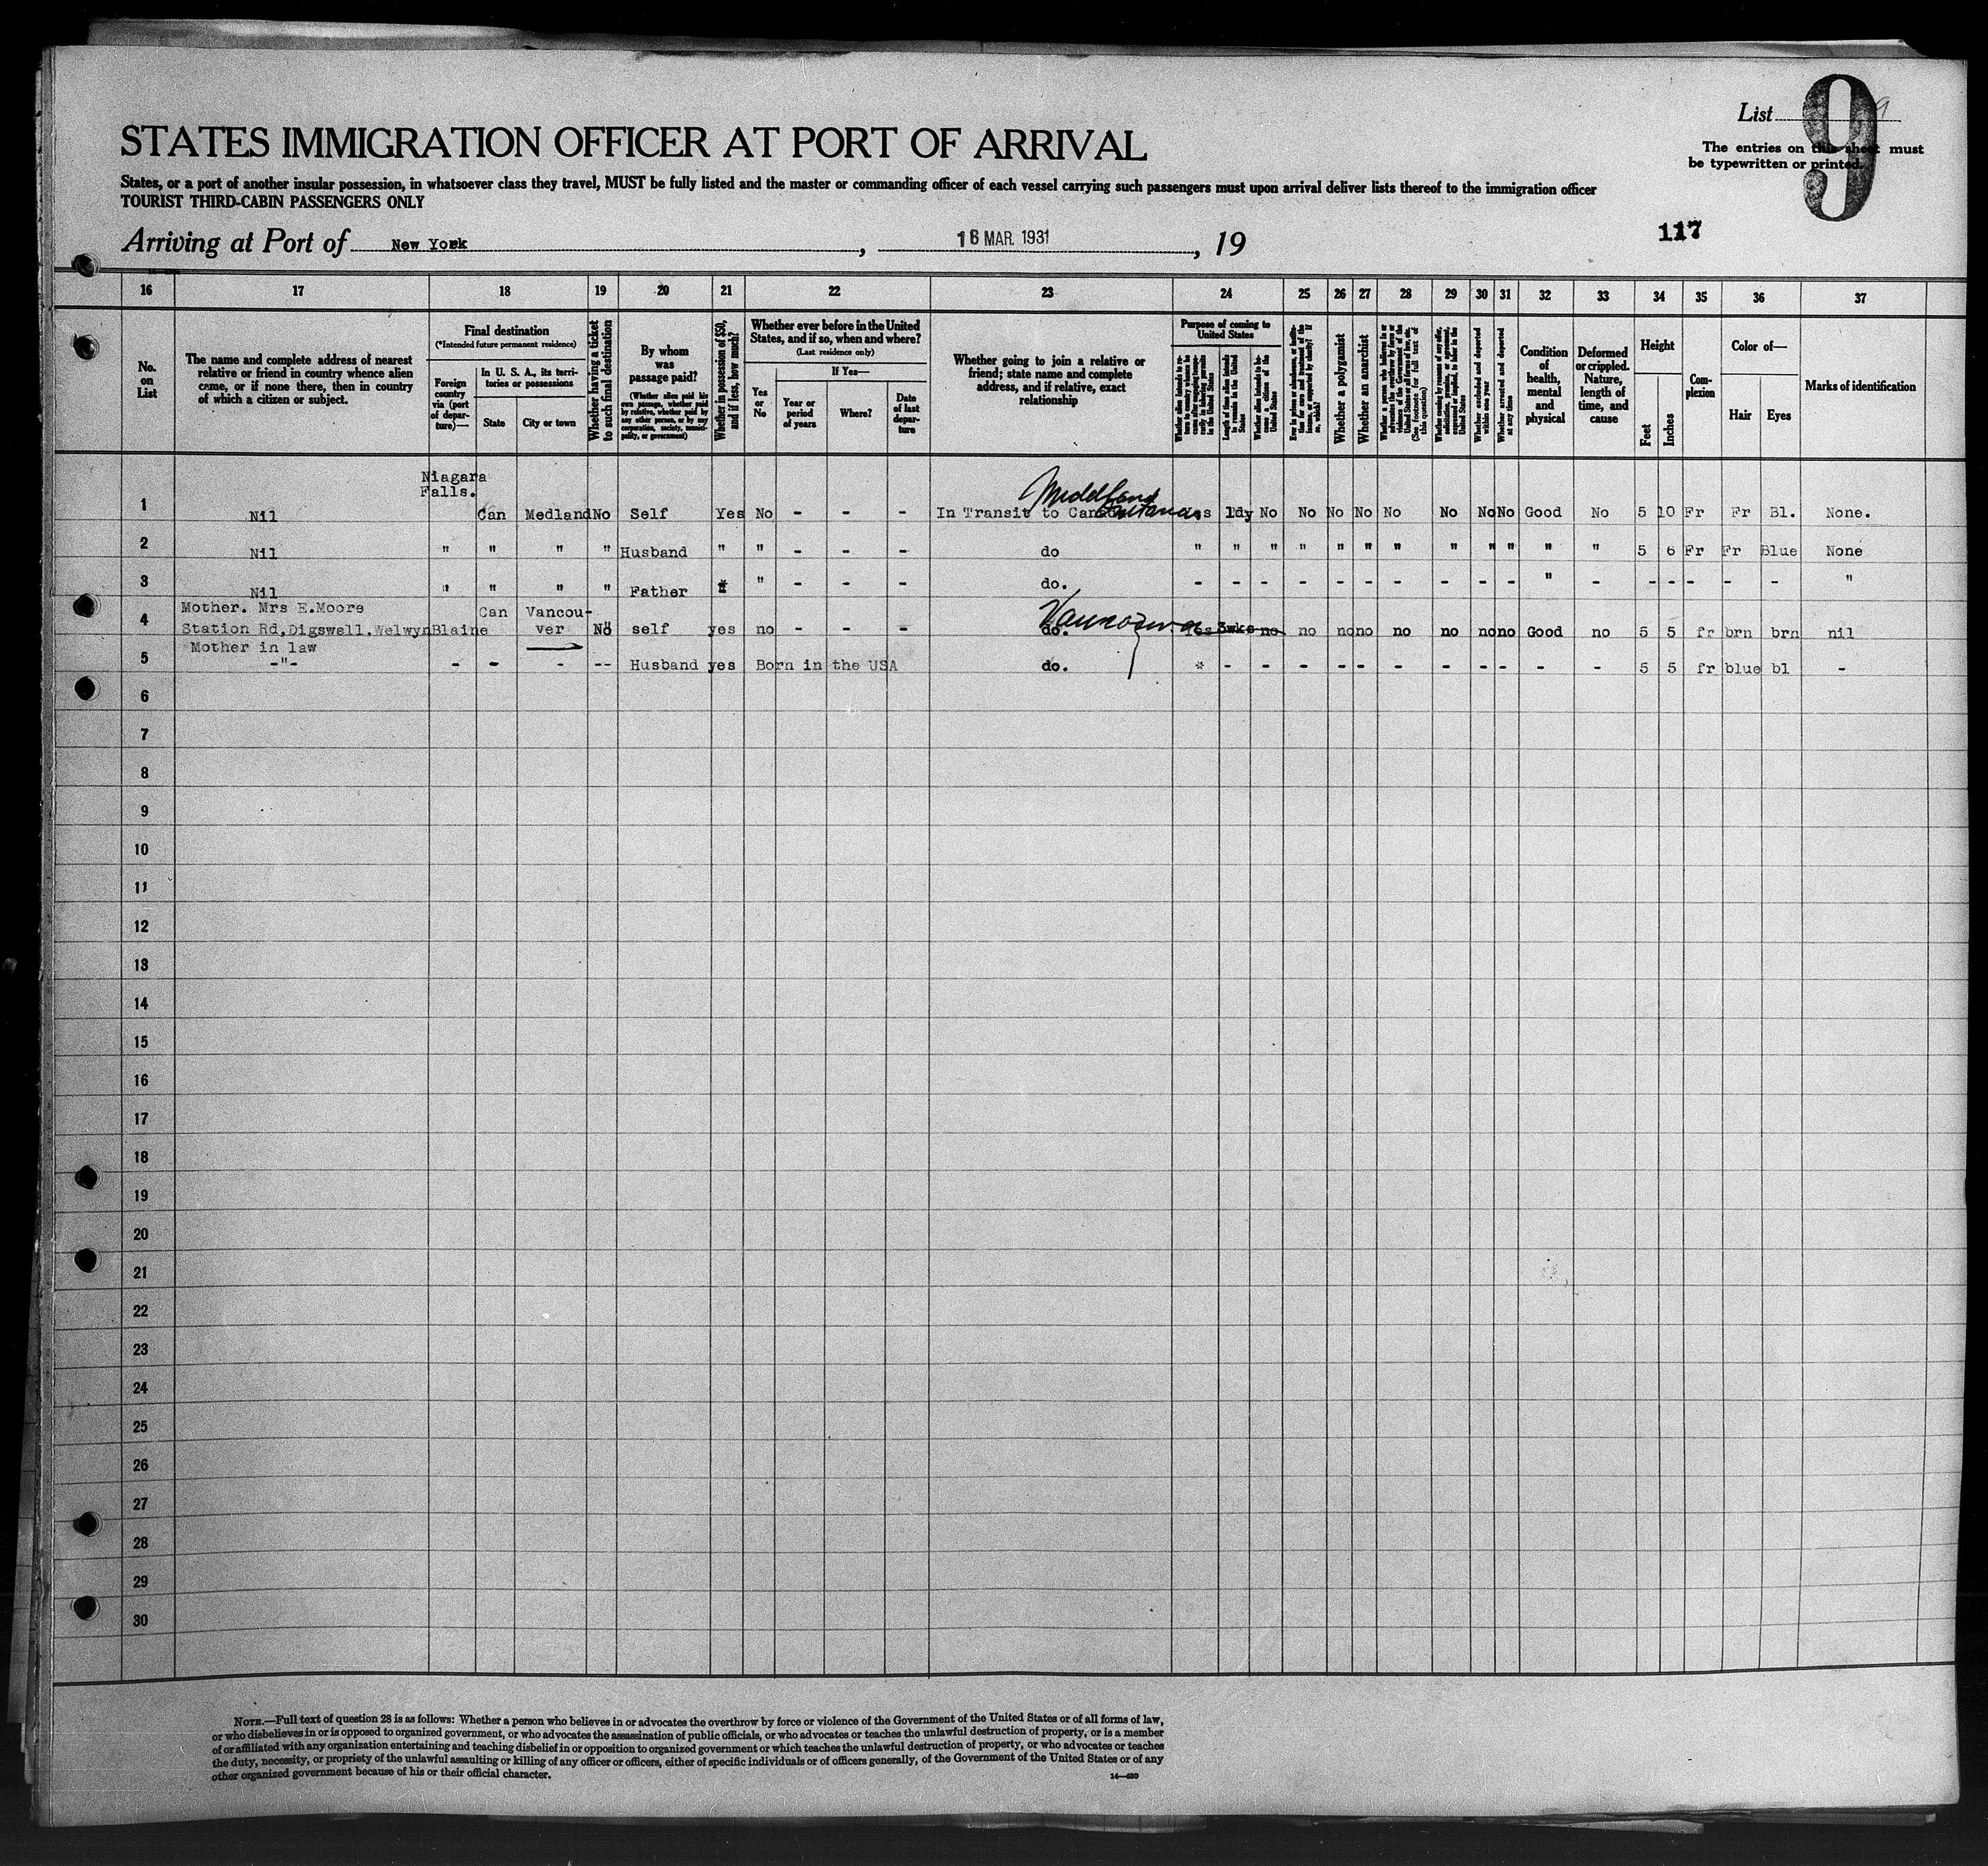 List 9
9
STATES IMMIGRATION OFFICER AT PORT OF ARRIVAL
The entries on this sheet must
be typewritten or printed.
States, or a port of another insular possession, in whatsoever class they travel, MUST be fully listed and the master or commanding officer of each vessel carrying such passengers must upon arrival deliver lists thereof to the immigration officer
TOURIST THIRD-CABIN PASSENGERS ONLY
Arriving at Port of New York, 16 MAR. 1931, 19
117
16 17 18 19 20 21 22 23 24 25 26 27 28 29 30 31 32 33 34 35 36 37
No.
on
List
The name and complete address of nearest
relative or friend in country whence alien
came, or if none there, then in country
of which a citizen or subject.
Final destination
(*Intended future permanent residence)
Foreign
country
via (port
of depar-
ture)—
In U. S. A., its terri-
tories or possessions
State
City or town
Whether having a ticket
to such final destination
By whom
was
passage paid?
(Whether alien paid his
own passage, whether paid
by relative, whether paid by
any other person, or by any
corporation, society, munici-
pality, or government)
Whether in possession of $50,
and if less, how much?
Whether ever before in the United
States, and if so, when and where?
(Last residence only)
Yes
or
No
If Yes—
Year or
period
of years
Where?
Date
of last
depar-
ture
Whether going to join a relative or
friend; state name and complete
address, and if relative, exact
relationship
Purpose of coming to
United States
Whether a polygamist
Whether an anarchist
Whether arrested and deported
at any time
Condition
of
health,
mental
and
physical
Deformed
or crippled.
Nature,
length of
time, and
cause
Height
Feet
Inches
Com-
plexion
Color of—
Hair
Eyes
Marks of identification
Niagara
Falls.
Middland
1 Nil Can Medland No Self Yes No - - - In Transit to 1dy No No No No No No No No Good No 5 10 Fr Fr Bl. None.
2 Nil " " " " Husband " " - - - do " " " " " " " " " " " " 5 6 Fr Fr Blue None
3 Nil " " " " Father * " - - - do. - - - - - - - - - - " - - - - - - "
Mother. Mrs E.Moore Can Vancou-
Vancouver
4 Station Rd,Digswell.Welwyn Blaine ver No self yes no - - - do. Yes 3wks no no no no no no no no Good no 5 5 fr brn brn nil
Mother in law
5 -"- - - - -- Husband yes Born in the USA do. * - - - - - - - - - - - 5 5 fr blue bl -
6
7
8
9
10
11
12
13
14
15
16
17
18
19
20
21
22
23
24
25
26
27
28
29
30
NOTE.—Full text of question 28 is as follows: Whether a person who believes in or advocates the overthrow by force or violence of the Government of the United States or of all forms of law,
or who disbelieves in or is opposed to organized government, or who advocates the assassination of public officials, or who advocates or teaches the unlawful destruction of property, or is a member
of or affiliated with any organization entertaining and teaching disbelief in or opposition to organized government or which teaches the unlawful destruction of property, or who advocates or teaches
the duty, necessity, or propriety of the unlawful assaulting or killing of any officer or officers, either of specific individuals or of officers generally, of the Government of the United States or of any
other organized government because of his or their official character.
14—430